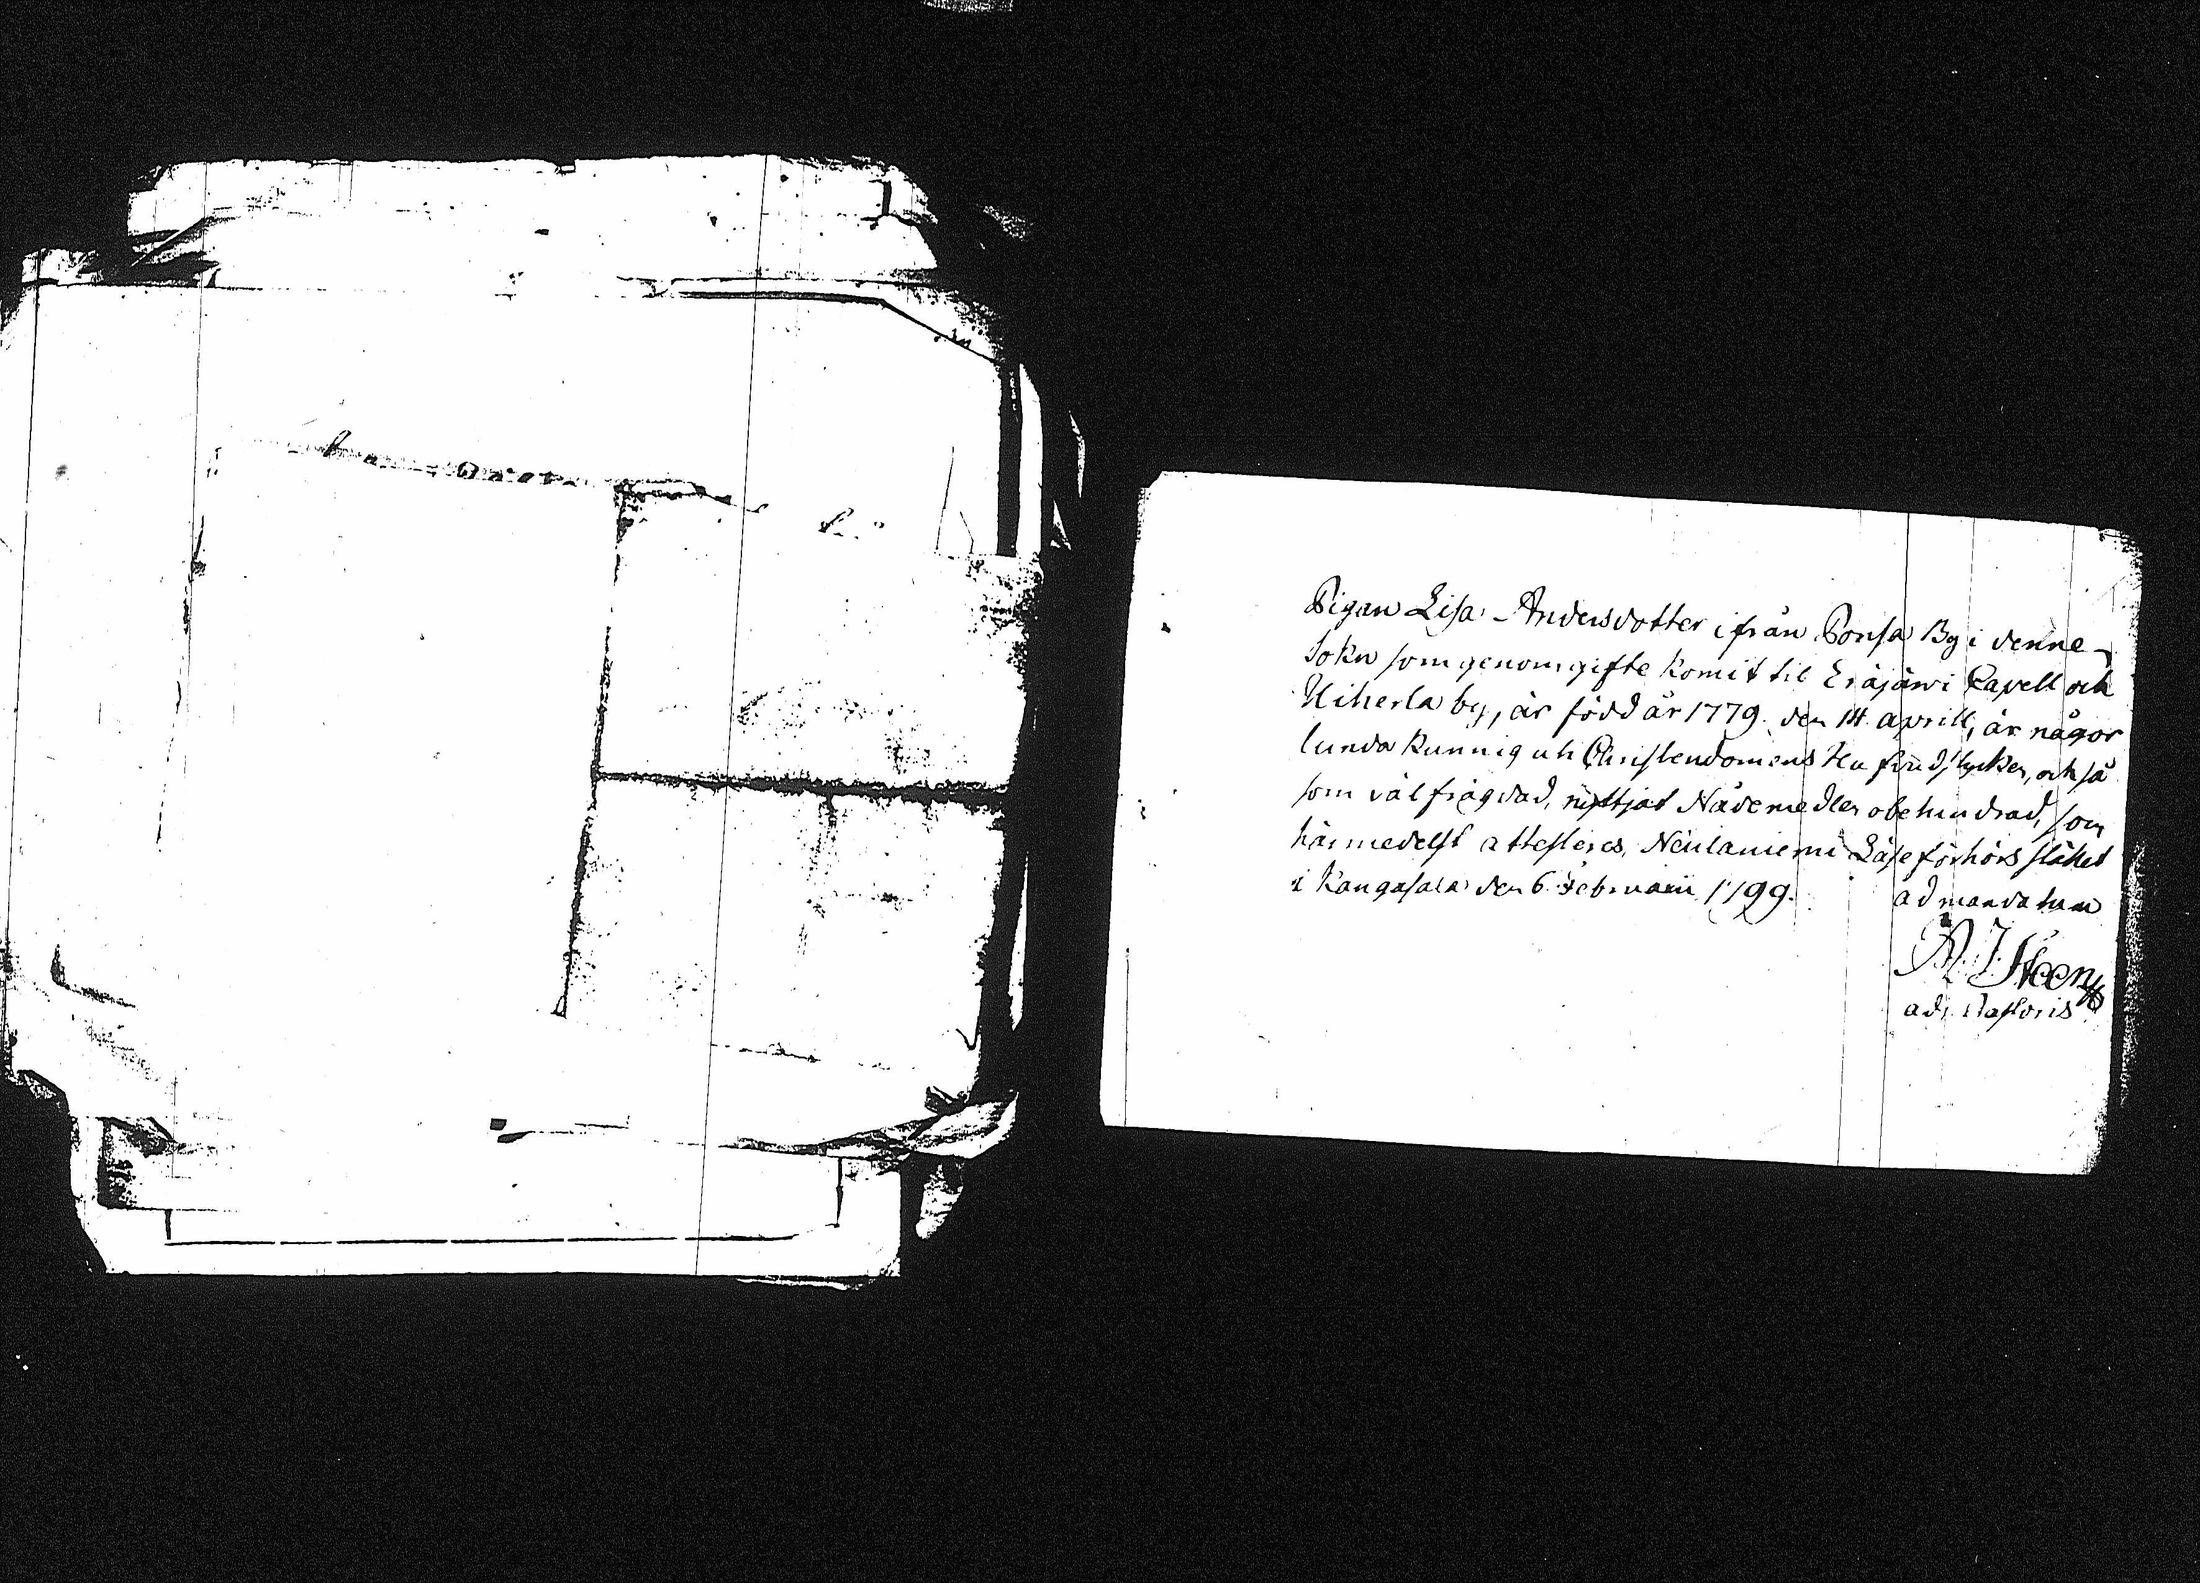 Pigan Lisa Andersdotter ifrån Ponsa By i denne
Sokn som genom gifte komit til Eräjärvi Capell och
Uiherla by, är född år 1779 den 14 aprill, är någor
lunda kunnig uti Christendomens Hufvudstycker, och så
som välfrägdad, nyttjat Nådemedlen obehindrad, som
härmedelst attesteres, Neulaniemi Läseförhörs stället
i Kangasala den 6 Februarii 1799.
ad mandatum
Steen
adj. Pastoris